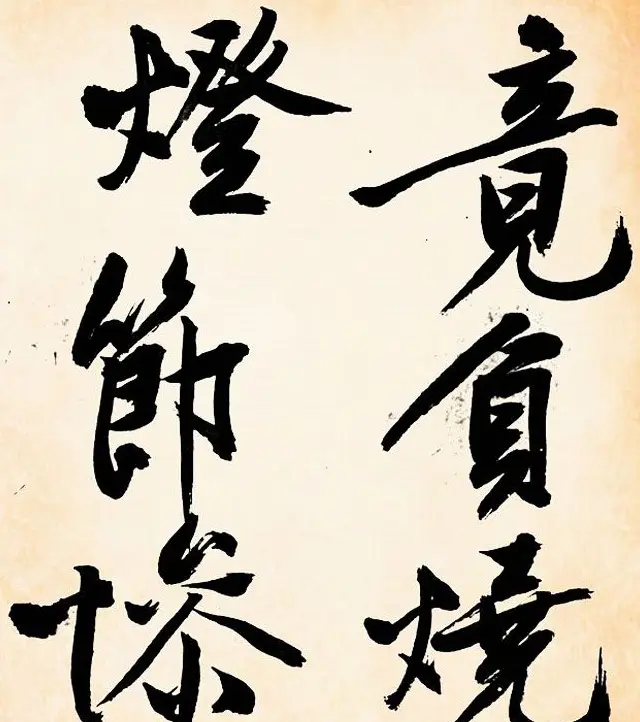 竟負燒
燈節慘